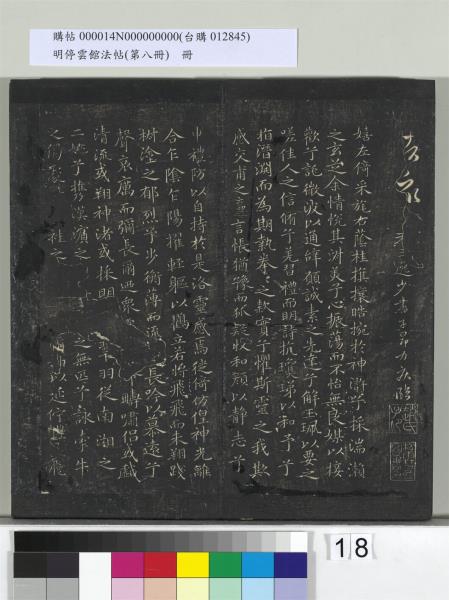 購帖 000014N000000000(台購 012845)
明停雲館法帖(第八冊) 冊
嬉左倚采旄右蔭桂旗攘皓捥於神滸兮採湍瀨
之玄芝余情悅其淑美兮心振蕩而不怡無良媒以接
歡兮託微波以通辭願誠素之先達兮解玉珮以要之
嗟佳人之信脩兮羌習禮而明詩抗瓊珶以和予兮
指潛淵而為期執拳之款實兮懼斯靈之我欺
感交甫之棄言悵猶豫而狐疑收和顏以靜志兮
申禮防以自持於是洛靈感焉徙倚仿偟神光離
合乍陰乍陽擢輕軀以鶴立若將飛而未翔踐
椒塗之郁烈兮步蘅薄而流 長吟以慕遠兮
聲哀厲而彌長爾迺衆 疇嘯侶或戲
清流或翔神渚或採明 羽從南湘之
二妣兮攜漢濱之 之無匹兮詠牽牛
之獨處 袿之 以延佇
18